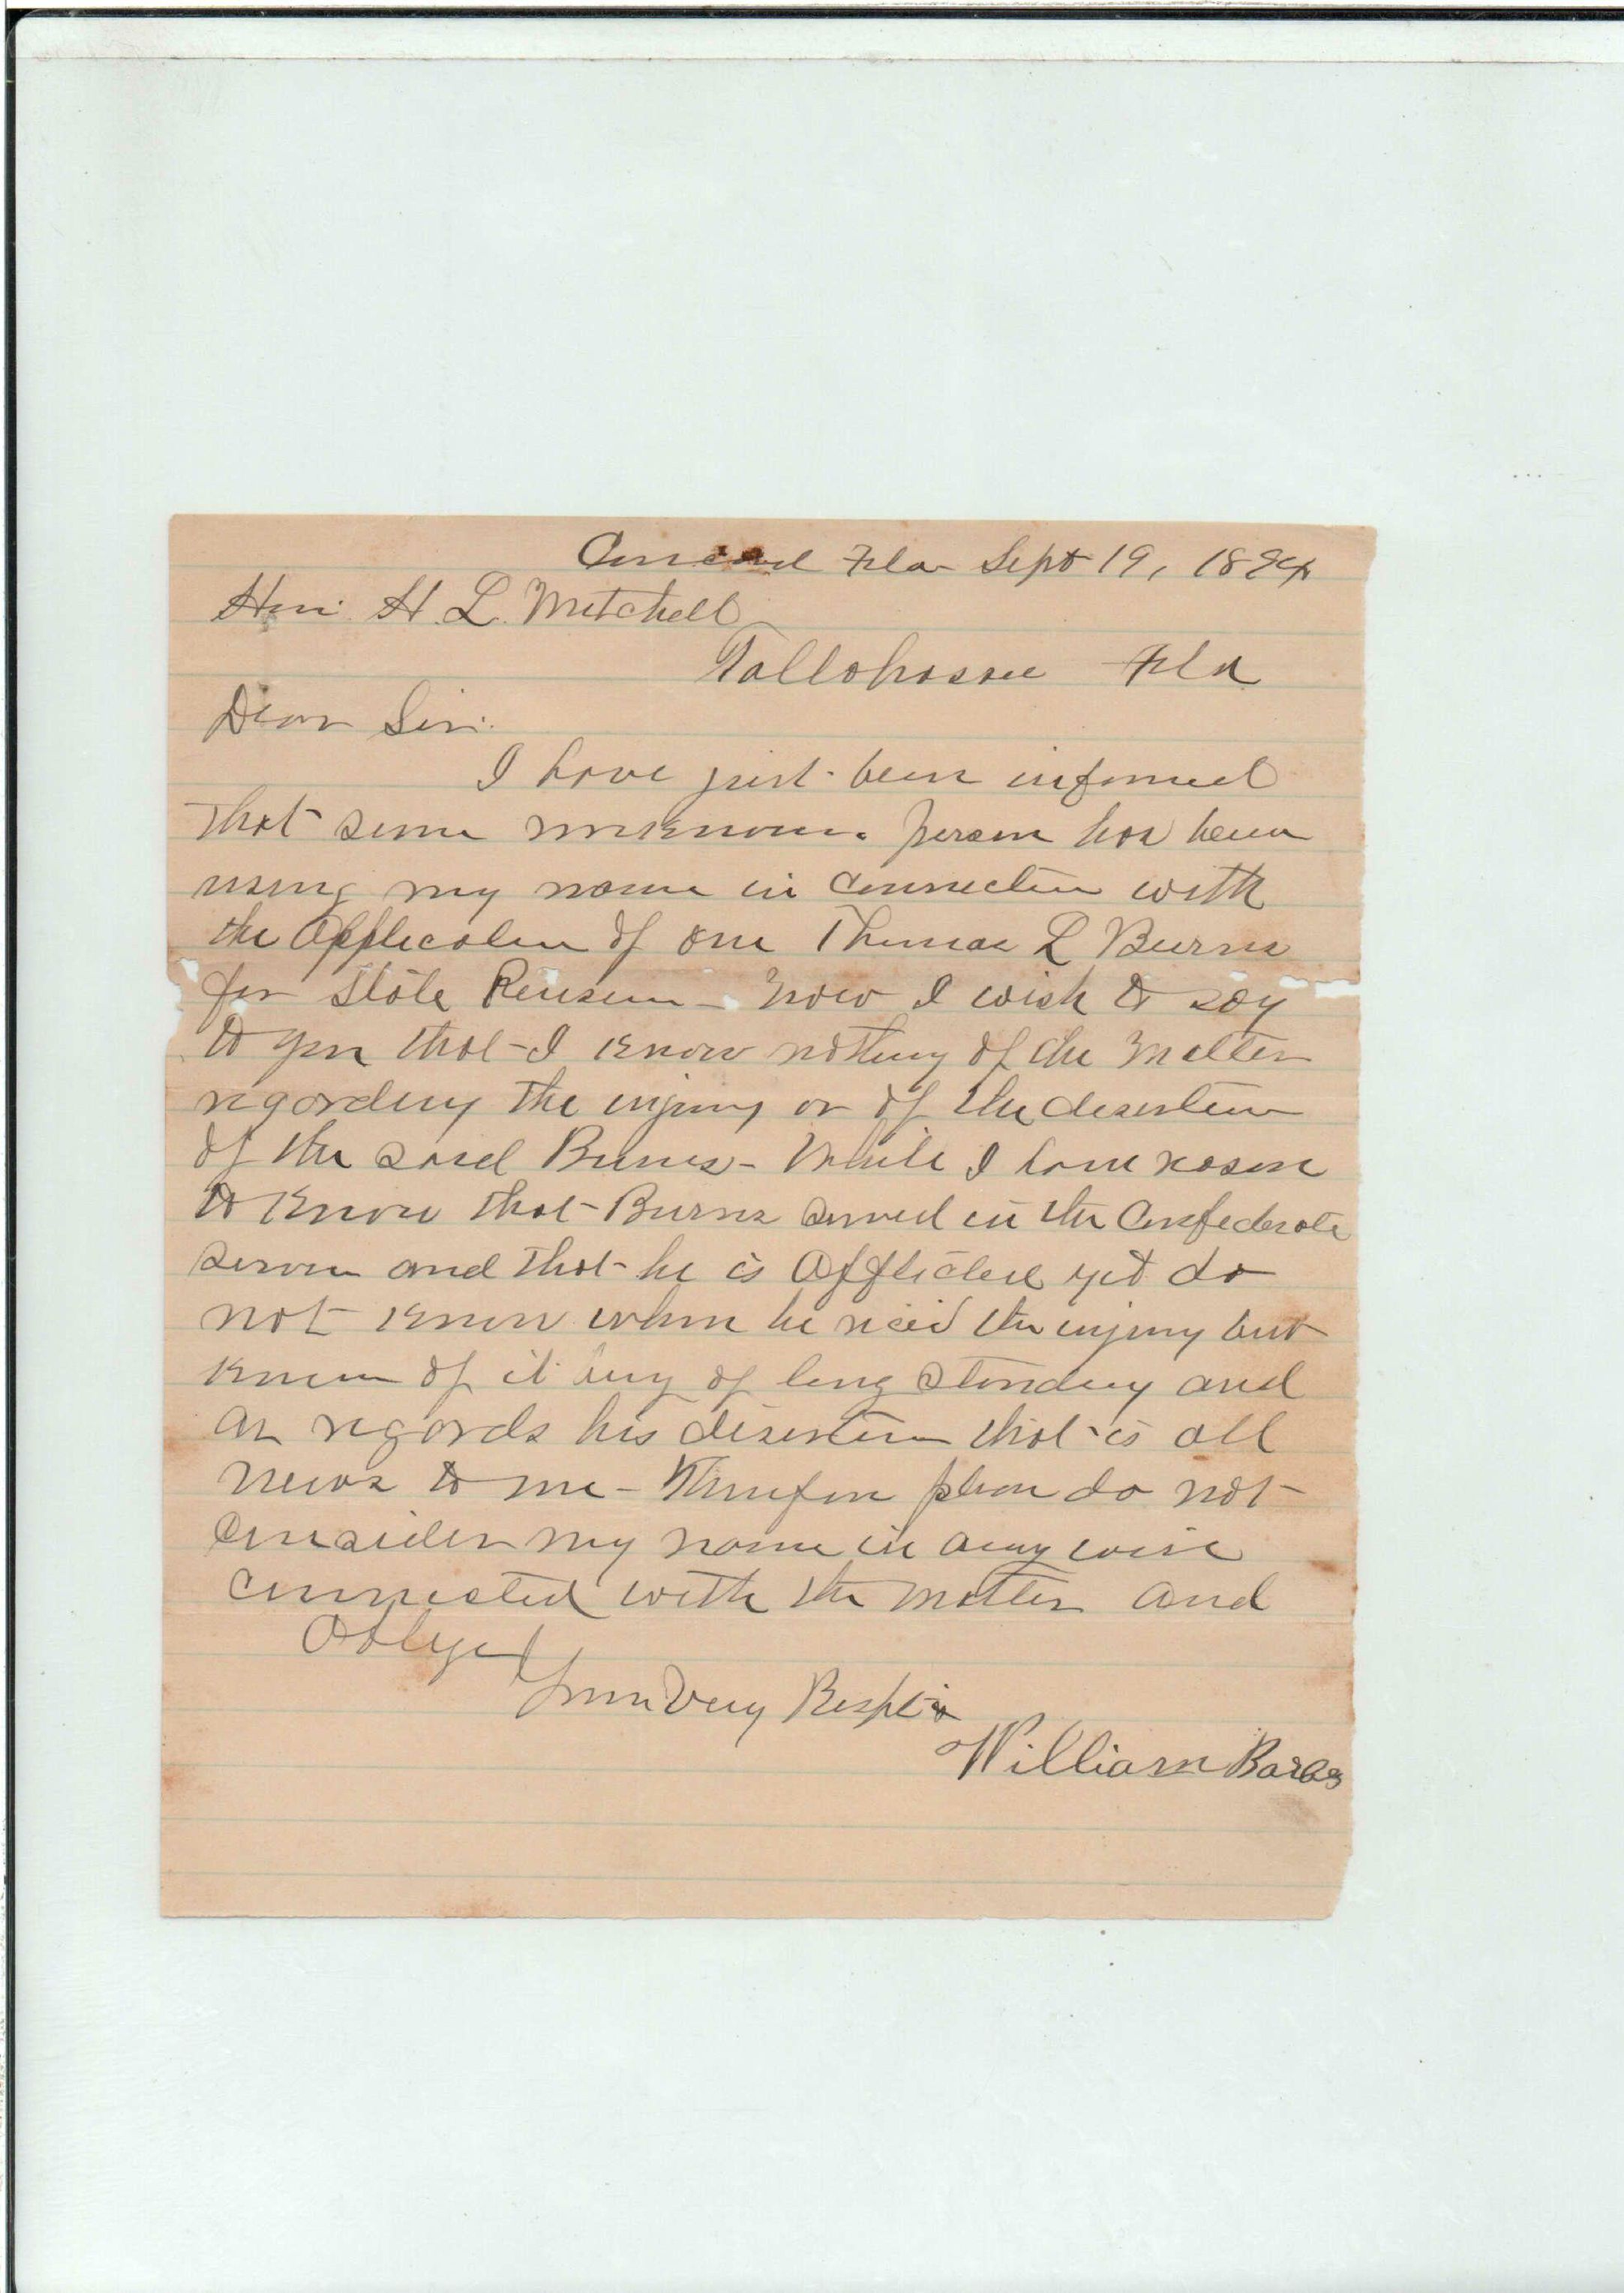 Concord Fla Sept 19, 1894
Hon. H. L. Mitchell
Tallahassee Fla
Dear Sir:
I have just been informed
that some unknown person has been
using my name in connection with
the Application of one Thomas L Burns
for State Pension - Now I wish to say
to you that I know nothing of the matter
regarding the injury or of the desertion
of the said Burns - While I have reason
to know that Burns served in the Confederate
service and that he is Afflicted yet do
not know when he rec'd the injury but
know of it being of long standing and
as regards his desertion that is all
news to me - Therefore please do not
consider my name in any wise
connected with the matter and
Oblige
Your Very Respt
William